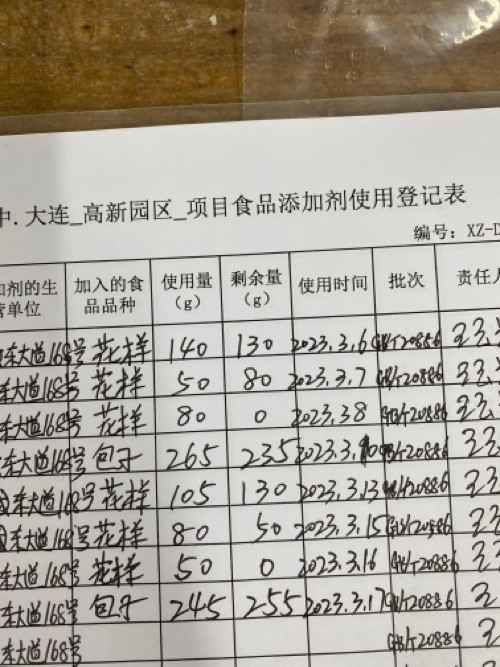 中.大连_高新园区_项目食品添加剂使用登记表
编号：XZ-D
加剂的生 加入的食 使用量 剩余量 使用时间 批次 责任人
营单位 品品种 （g） （g）
东大道168号 花样 140 130 2023.3.6 GB/T20886
东大道168号 花样 50 80 2023.3.7 GB/T20886
东大道168号 花样 80 0 2023.3.8 GB/T20886
东大道168号 包子 265 235 2023.3.10 GB/T20886
东大道168号 花样 105 130 2023.3.13 GB/T20886
东大道168号 花样 80 50 2023.3.15 GB/T20886
东大道168号 花样 50 0 2023.3.16 GB/T20886
东大道168号 包子 245 255 2023.3.17 GB/T20886
东大道168号 GB/T20886